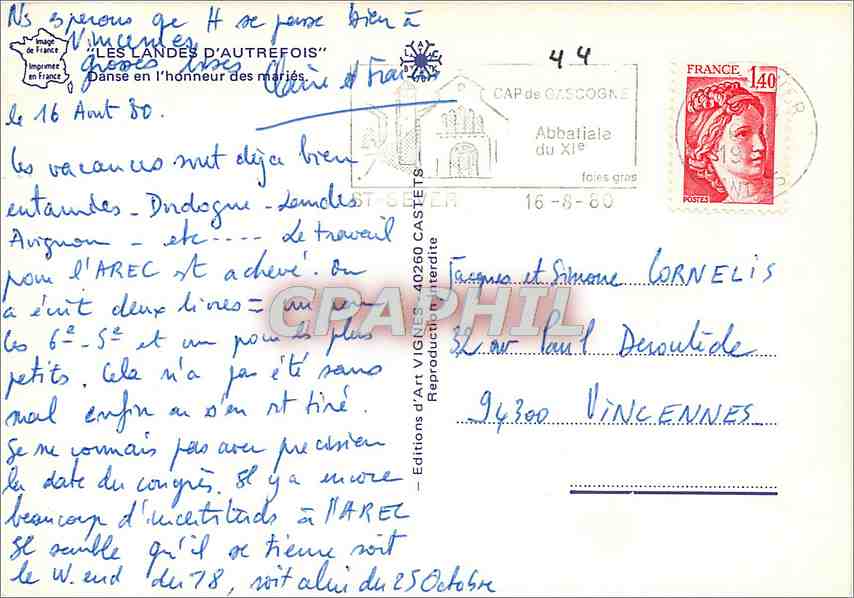 Ns esperons qe tt se passe bien à
Vincennes
grosses bises
Claire et
Image
de France
Imprimée
en France
"LES LANDES D'AUTREFOIS"
Danse en l'honneur des mariés.
le 16 Aout 80.
Les vacances sont déjà bien
entamées - Dordogne - Landes
Avignon - etc .... Le travail
pour l'AREC est achevé. On
a écrit deux livres = un pour
les 6e - 5e et un pour les plus
petits. Cela n'a pas été sans
mal enfin on s'en est tiré.
Je ne connais pas avec précision
la date du congrès. Il y a encore
beaucoup d'incertitudes à l'AREC
Il semble qu'il se tienne soit
le W.end du 18, soit celui du 25 Octobre
- Editions d'Art VIGNES - 40260 CASTETS -
Reproduction interdite
44
CAP de GASCOGNE
Abbatiale
du XIe
foies gras
ST-SEVER
16-8-80
FRANCE
1,40
POSTES
Jacques et Simone CORNELIS
32 av Paul Deroulède
94300 VINCENNES
CPAPHIL